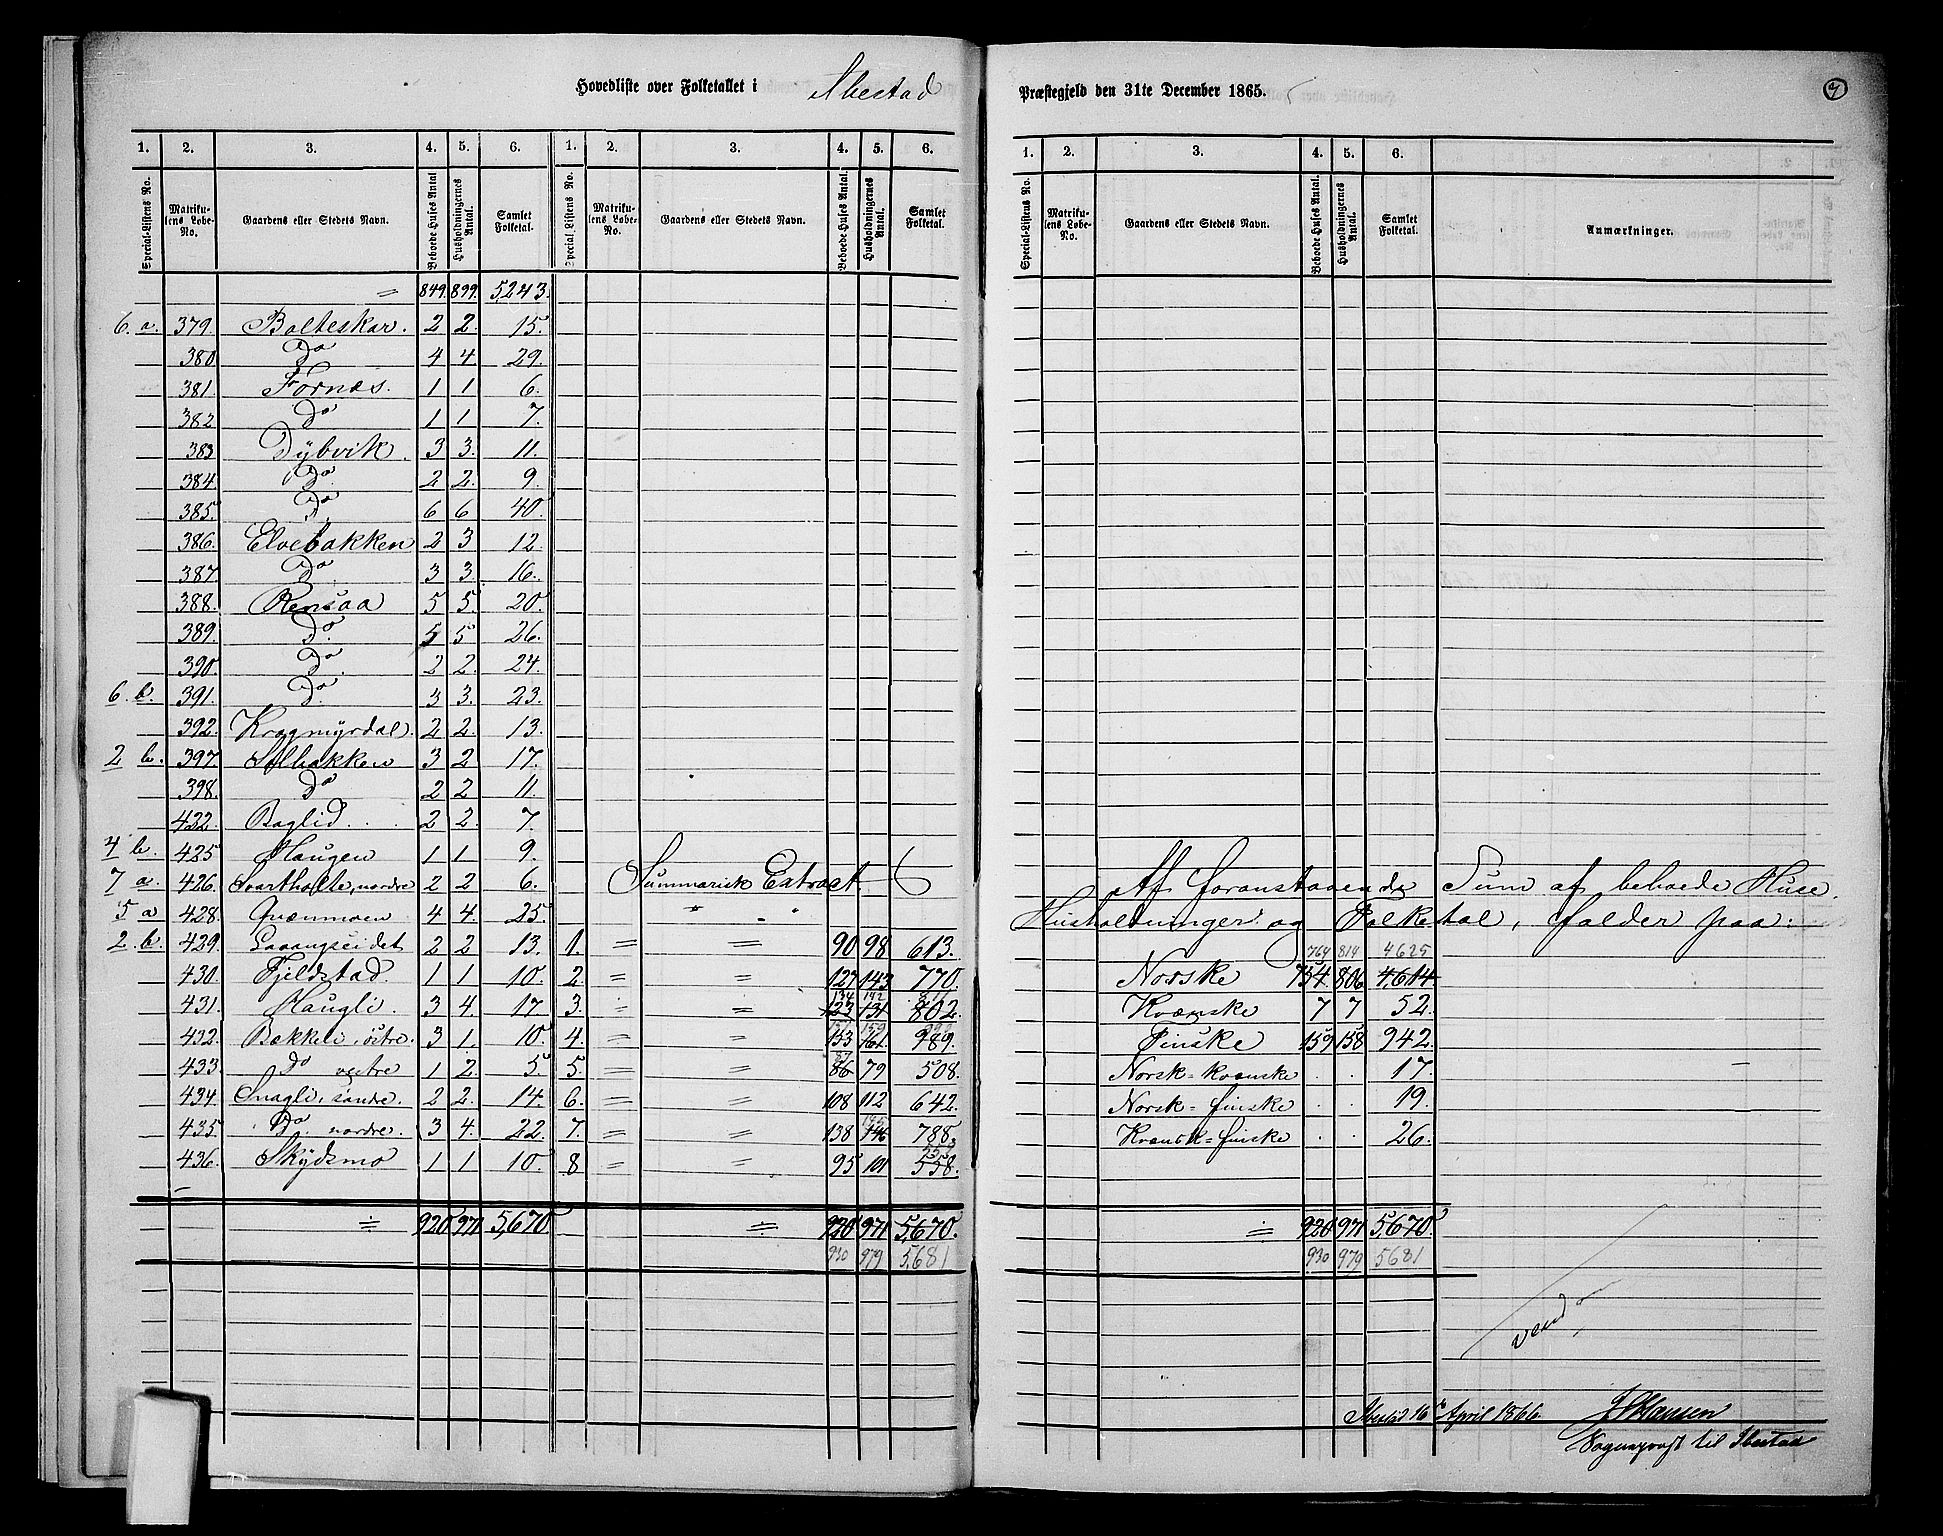 Hovedliste over Folketallet i Ibestad
Præstegjeld den 31te December 1865.
7
1. 2. 3. 4. 5. 6. 1. 2. 3. 4. 5. 6.
Special-Listens No. Matrikulens Løbe-No. Gaardens eller Stedets Navn. Beboede Huses Antal Husholdningernes Antal. Samlet Folketal. Special Listens No. Matrikulens Løbe-No. Gaardens eller Stedets Navn. Beboede Huses Antal. Husholdningernes Antal. Samlet Folketal.
= 849. 899. 5,243.
6. a. 379. Bolteskar. 2 2. 15.
380 Do 4 4. 29.
381. Fornæs. 1 1 6.
382 Do 1 1 7.
383 Dybvik. 3 3. 11.
384. Do. 2 2. 9.
385. Do. 6 6 40.
386. Elvebakken 2 3 12.
387 Do 3 3. 16.
388. Rensaa 5 5. 20.
389. Do. 5 5 26.
390. Do. 2 2. 24.
6. b. 391. Do. 3 3. 23.
392. Krogmyrdal. 2 2. 13.
2 b. 397. Solbakken 3 2 17.
398. Do 2 2 11.
422. Boglid. 2 2. 7.
4 b. 425 Haugen 1 1 9.
7 a. 426. Svartholte, nordre 2 2 6.
5 a 428. Qvænmoen 4 4. 25.
2. b. 429. Laaangseidet 2 2 13.
430. Fjeldstad. 1 1 10.
431. Haugli. 3 4. 17.
432. Bakkeli, østre. 3 1. 10.
433 Do vestre 1 2. 5.
434. Snagli, søndre. 2 2. 14.
435. Do. nordre. 3 4. 22.
436. Skydsmo 1 1 10.
= 920 971 5,670.
Summarisk Extract.
1. = = 90 98 613.
2. = = 127 143 770.
134 142
3. = = 123 131 802.
159
4. = = 153 161. 989.
87
5. = = 86 79 508.
6. = = 108 112 642.
7. = = 138 146 788.
8 = = 95 101 558.
= 920 971 5,670.
930 979 5,681
1. 2. 3. 4. 5. 6.
Special-Listens No. Matrikulens Løbe-No. Gaardens eller Stedets Navn. Beboede Huses Antal. Husholdningernes Antal. Samlet Folketal. Anmærkninger.
Af foranstaaende Sum af beboede Huse,
Husholdninger og Folketal, falder paa:
764 814 4625
Norske 754. 806 4,614
Kvænske 7 7 52.
Finske 159 158 942.
Norsk=kvænske . . 17.
Norsk=finske . . 19.
Kvænsk=finske . . 26.
= 920 971 5,670.
930 979 5681
vend
Ibestad 16 April 1866.
Hansen
Sogneprest til Ibestad